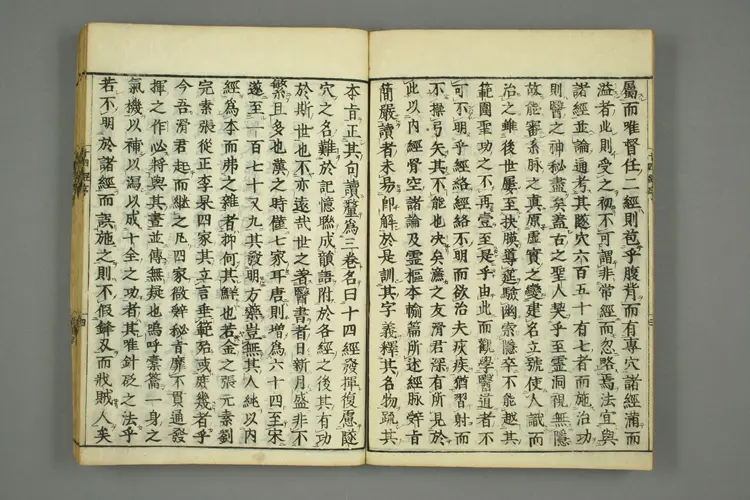 屬而唯督任二經則苞乎腹背而有專穴諸經滿而
溢者此則受之初不可謂非常經而忽略焉法宜與
諸經並論通考其隧穴六百五十有七者而施治功
則醫之神秘盡矣蓋古之聖人契乎至靈洞視無隱
故能審系脉之真原虛實之變建名立號使人識而
治之雖後世屢至抉膜導筳驗幽索隱卒不能越其
範圍聖功之不再壹至是乎由此而觀學醫道者不
可不明乎經絡經絡不明而欲治夫疢疾猶習射而
不操弓矢其不能也决矣濂之友滑君深有所見於
此以內經骨空諸論及靈樞本輸篇所述經脉辭旨
簡嚴讀者未易即解於是訓其字義釋其名物疏其
本旨正其句讀釐爲三卷名曰十四經發揮復慮隧
穴之名難於記憶聯成韻語附於各經之後其有功
於斯世也不亦遠哉世之著醫書者日新月盛非不
繁且多也漢之時僅七家耳唐則增爲六十四至宋
遂至一百七十又九其發明方藥豈無其人純以內
經爲本而弗之雜者抑何其鮮也若金之張元素劉
完素張從正李杲四家其立言垂範殆或庶幾者乎
今吾滑君起而繼之凡四家微辭秘旨靡不貫通發
揮之作必將與其書並傳無疑也嗚呼橐籥一身之
氣機以補以瀉以成十全之功者其唯針砭之法乎
若不明於諸經而誤施之則不假鋒刃而戕賊人矣